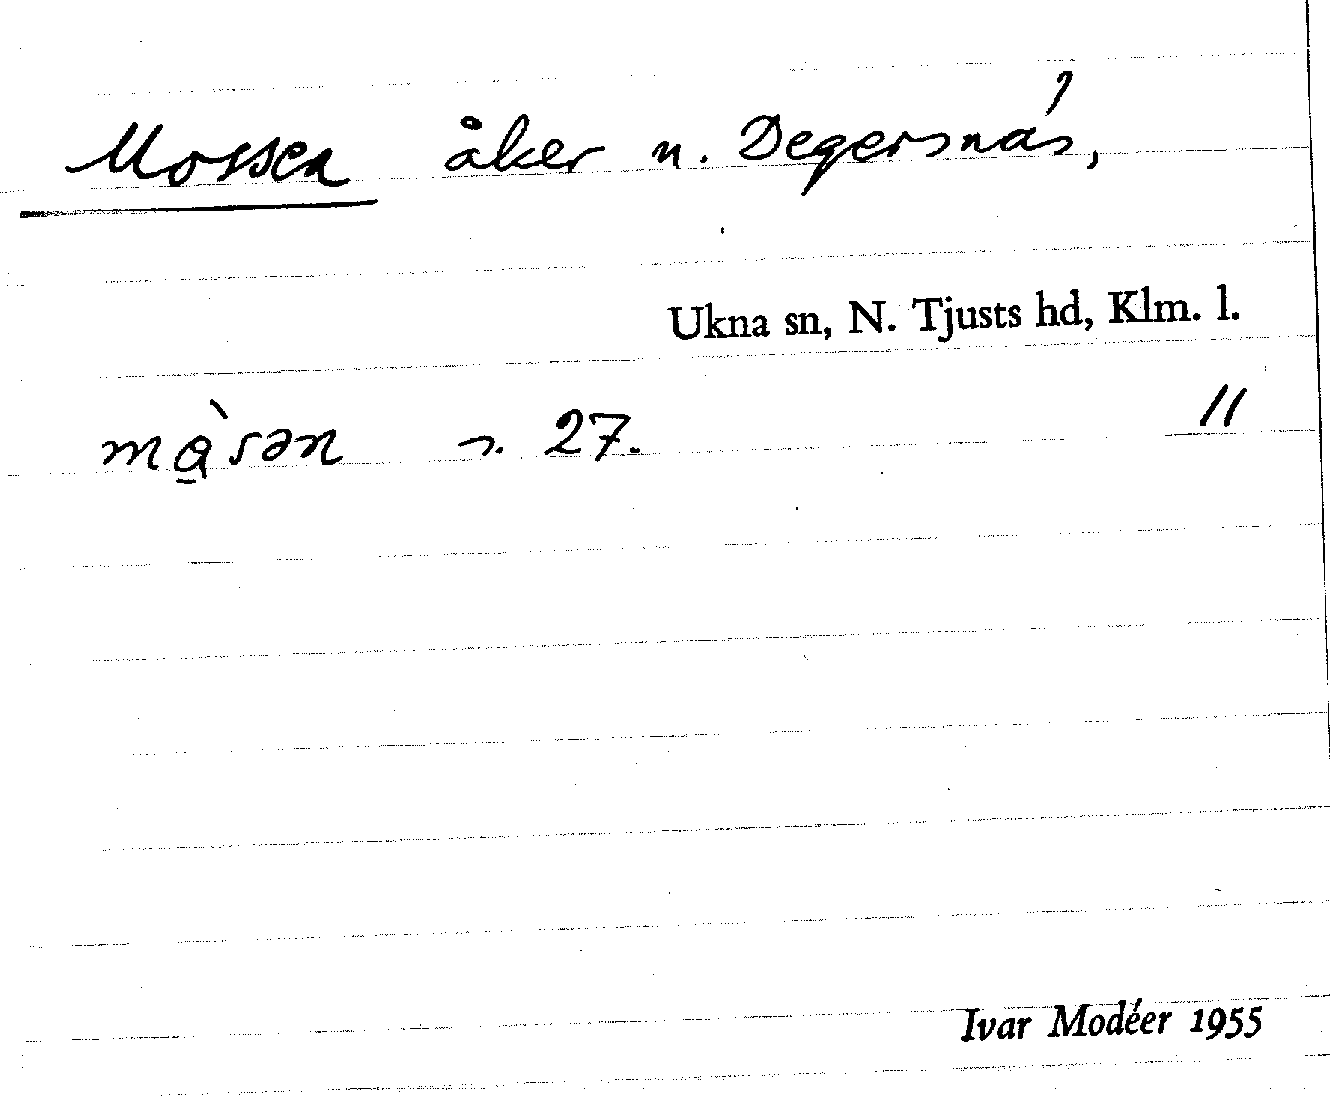 Mossen åker n. Degersnäs,
Ukna sn, N. Tjusts hd, Klm. l.
måsən s. 27. 11
Ivar Modéer 1955